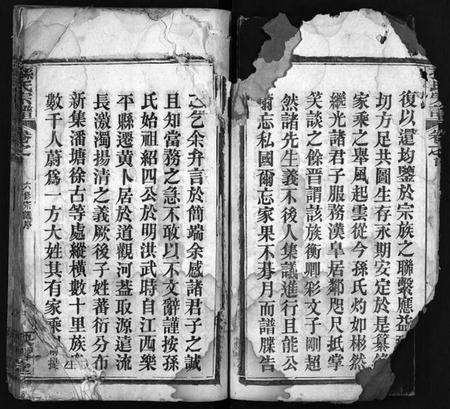 復以還均鑒於宗族之聯繫應益
切方足共圖生存永期安定於是纂修
家乘之舉風起雲從今孫氏灼如彬然
繼光諸君子服務漢皐居鄰咫尺抵掌
笑談之餘晉謂該族衡卿彩文子剛超
然諸先生義不後人集議進行且能公
爾忘私國爾忘家果不朞月而譜牒告
之乞余弁言於簡端余感諸君子之誠
且知當務之急不敢以不文辭謹按孫
氏始祖紹四公於明洪武時自江西樂
平縣遷黃卜居於道觀河蓋取源遠流
長激濁揚清之義厥後子姓蕃衍分布
新集潘塘徐古等處縱橫數十里族
數千人蔚爲一方大姓其有家乘
孫氏宗譜
卷首
六修宗譜序